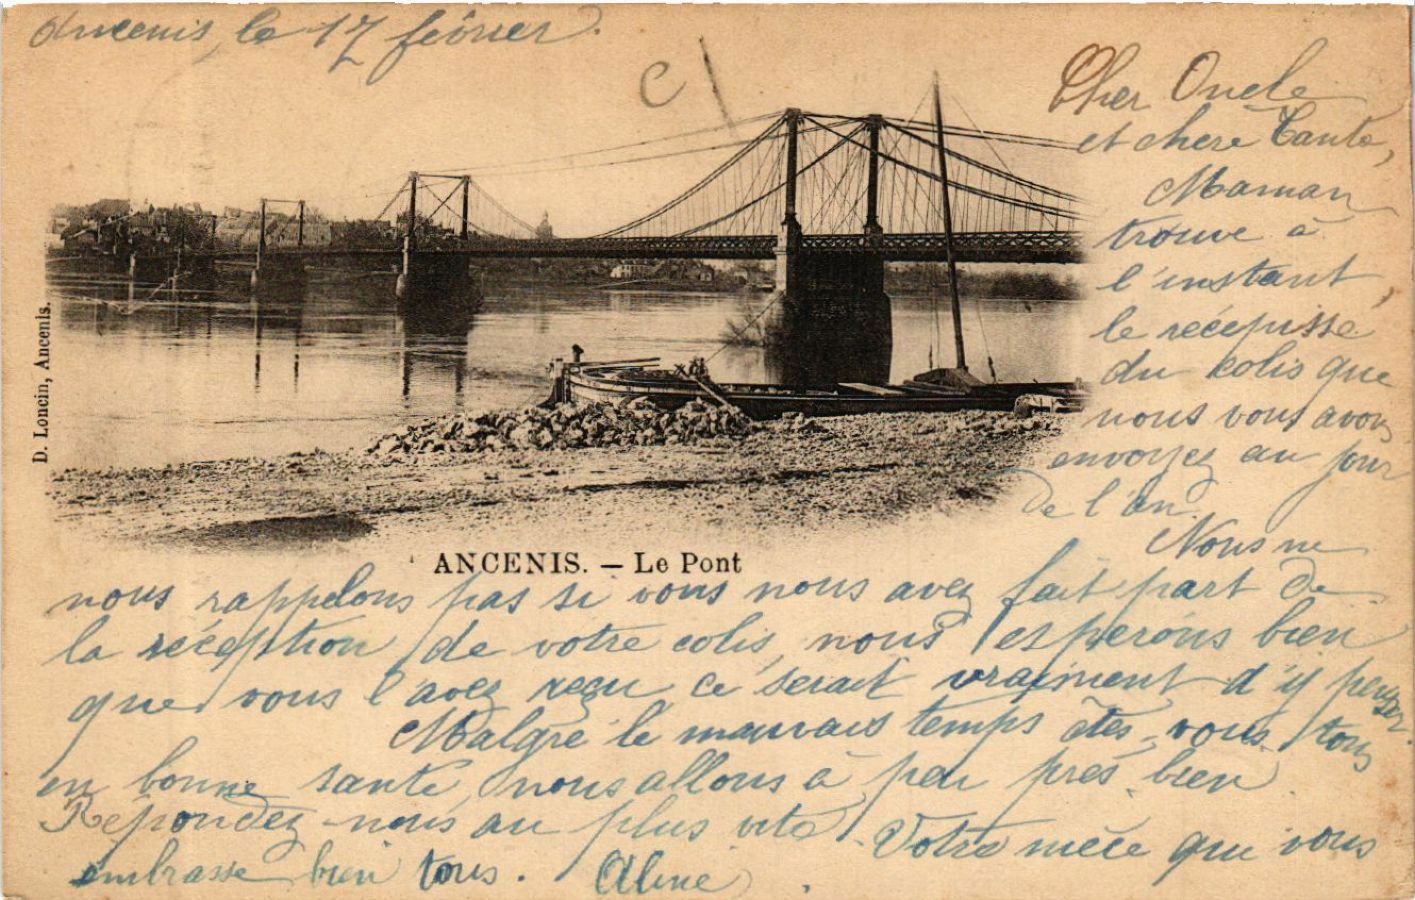 Ancenis le 17 février.
Cher Oncle
et chère Tante,
Maman
trouve à
l'instant,
le récépissé
du colis que
nous vous avons
envoyez au jour
de l'an.
Nous ne
D. Loncin, Ancenis.
ANCENIS. — Le Pont
nous rappelons pas si vous nous avez fait part de
la réception de votre colis, nous esperons bien
que vous l'avez reçu ce serait vraiment d'y penser.
Malgré le mauvais temps êtes-vous tous
en bonne santé, nous allons à peu près bien
Répondez-nous au plus vite. Votre mère que vous
embrasse bien tous. Aline.